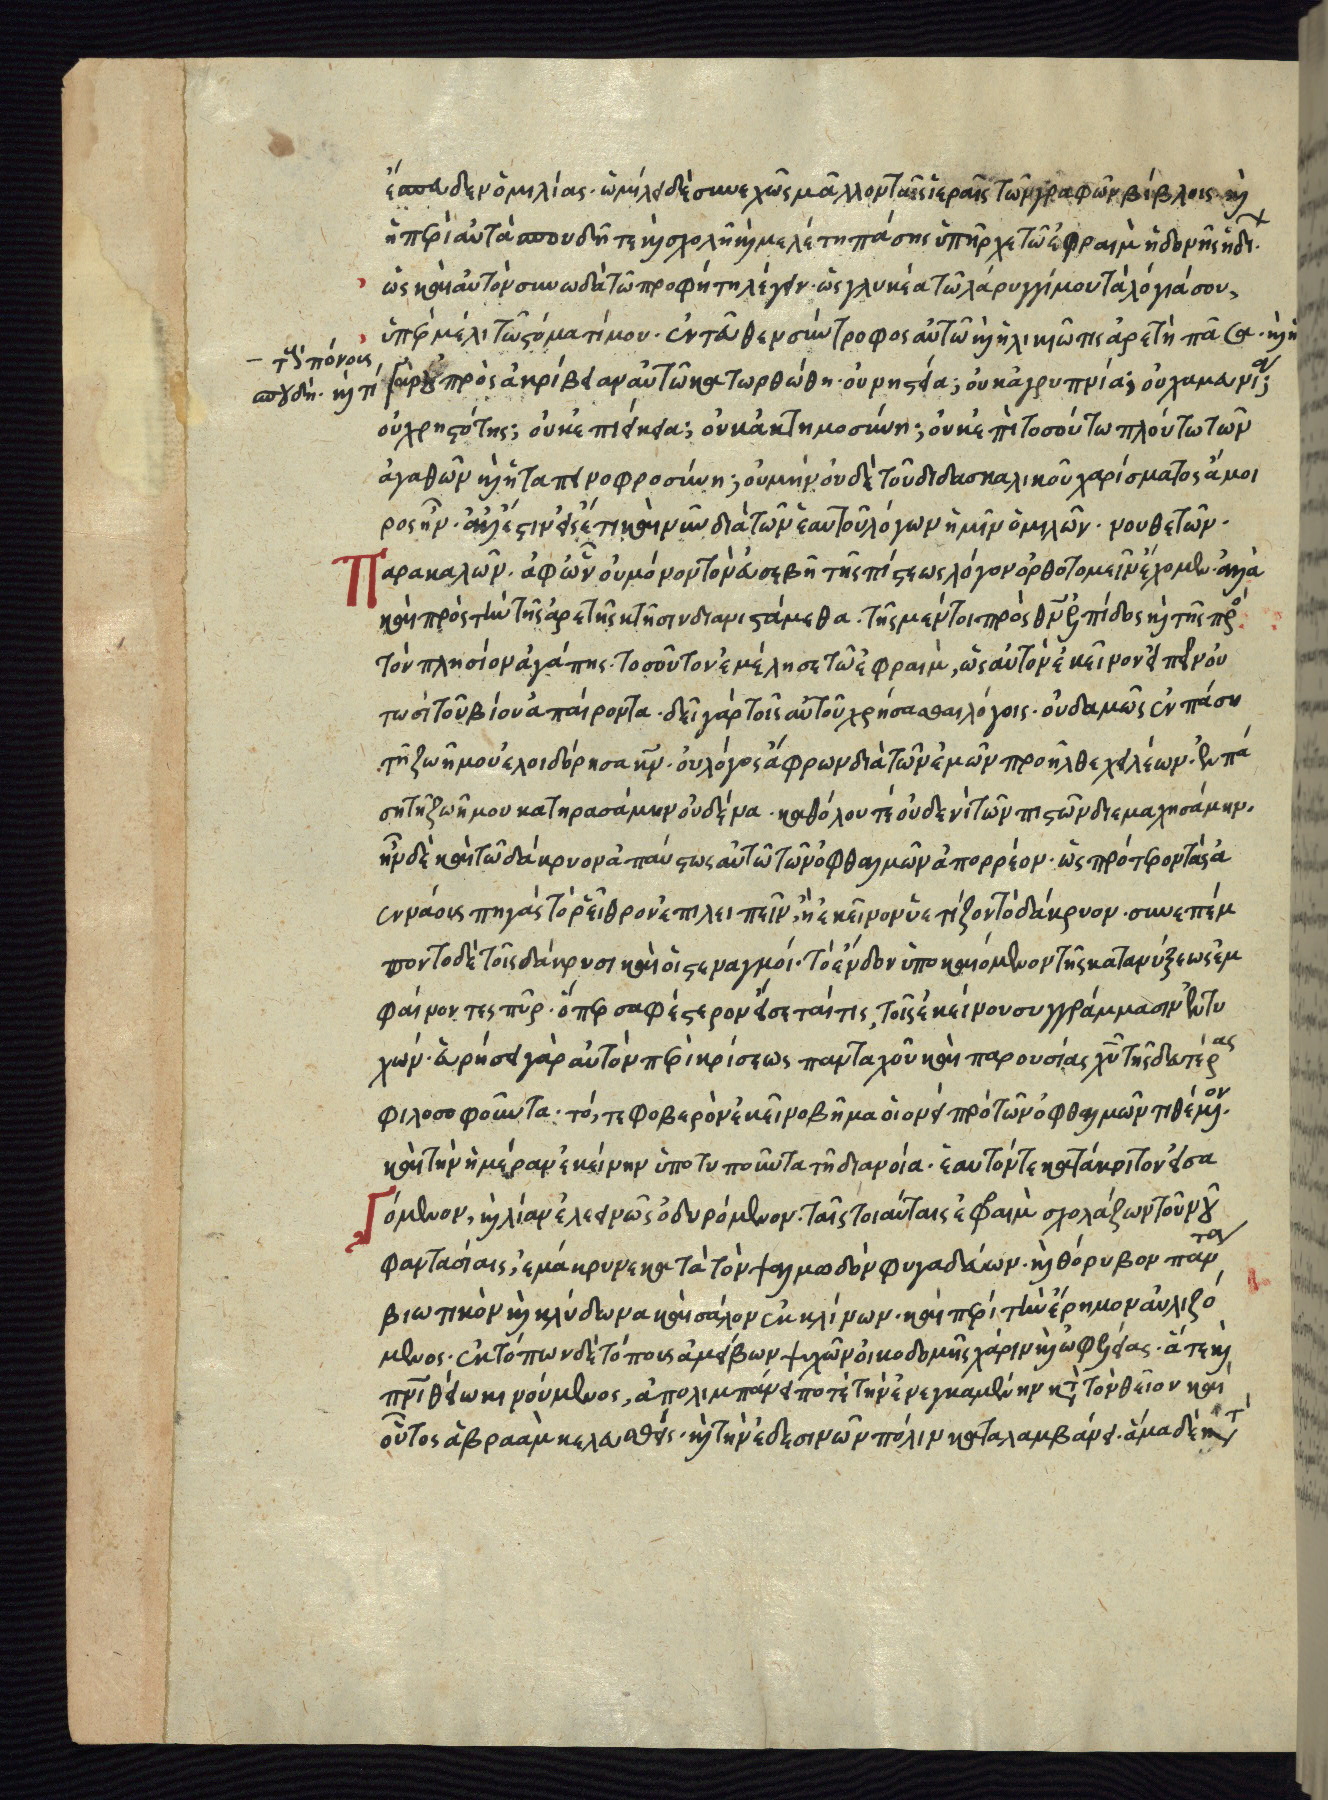 ἔσπευδεν ὁμιλίας· ὡμίλει δὲ συνεχῶς μᾶλλον ταῖς ἱεραῖς τῶν γραφῶν βίβλοις· καὶ
ἡ περὶ αὐτὰ σπουδή τε καὶ σχολὴ καὶ μελέτη πάσης ὑπῆρχε τῶ ἐφραὶμ ἡδονῆς ἡδί·
ὡς καὶ αὐτὸν συνωδὰ τῶ προφήτη λέγειν· ὡς γλυκέα τῶ λάρυγγί μου τὰ λόγιά σου,
ὑπὲρ μέλι τῶ στόματί μου· ἐντεῦθεν σύντροφος αὐτῶ καὶ ἡλικιῶτις ἀρετὴ πᾶσα· καὶ ἡ
– τοῖς πόνοις
σπουδή· καὶ τί
γὰρ οὐ πρὸς ἀκρίβειαν αὐτῶ κατωρθώθη· οὐ νηστεία; οὐκ ἀγρυπνία; οὐ χαμευνία;
οὐ χρηστότης; οὐκ ἐπιείκεια; οὐκ ἀκτημοσύνη; οὐκ ἐπὶ τοσούτω πλούτω τῶν
ἀγαθῶν καὶ ἡ ταπεινοφροσύνη; οὐ μὴν οὐδὲ τοῦ διδασκαλικοῦ χαρίσματος ἄμοι
ρος ἦν· ἀλλ' ἔστιν εἰσέτι καὶ νῦν διὰ τῶν ἑαυτοῦ λόγων ἡμῖν ὁμιλῶν· νουθετῶν·
Παρακαλῶν· ἀφ' ὧν οὐ μόνον τὸν εὐσεβῆ τῆς πίστεως λόγον ὀρθοτομεῖν ἔχομεν· ἀλλὰ
καὶ πρὸς τὴν τῆς ἀρετῆς κτῆσιν διανιστάμεθα· τῆς μέντοι πρὸς θν ἐλπίδος καὶ τῆς πρὸς
τὸν πλησίον ἀγάπης· τοσοῦτον ἐμέλησε τῶ ἐφραὶμ, ὡς αὐτὸν ἐκεῖνον εἰπεῖν οὐ
τωσὶ τοῦ βίου ἀπαίροντα· δεῖ γὰρ τοῖς αὐτοῦ χρήσασθαι λόγοις· οὐδαμῶς ἐν πάση
τῆ ζωῆ μου ἐλοιδόρησα κν· οὐ λόγος ἄφρων διὰ τῶν ἐμῶν προῆλθε χειλέων· ἐν πά
ση τῆ ζωῆ μου κατηρασάμην οὐδένα· καθόλου τὲ οὐδενὶ τῶν πιστῶν διεμαχησάμην·
ἦν δὲ καὶ τῶ δάκρυον ἀπαύστως αὐτῶ τῶν ὀφθαλμῶν ἀπορρέον· ὡς πρότερον τὰς ἀ
εννάους πηγὰς τὸ ῥεῖθρον ἐπιλειπεῖν, ἢ ἐκεῖνον ὑετίζον τὸ δάκρυον· συνεπέμ
ποντο δὲ τοῖς δάκρυσι καὶ οἱ στεναγμοί· τὸ ἔνδον ὑποκαιόμενον τῆς κατανύξεως ἐμ
φαίνοντες πῦρ· ὅπερ σαφέστερον εἴσεταί τις, τοῖς ἐκείνου συγγράμμασιν ἐντυ
χών· εὑρήσει γὰρ αὐτὸν περὶ κρίσεως πανταχοῦ καὶ παρουσίας χυ τῆς δευτέρας
φιλοσοφοῦντα· τό, τε φοβερὸν ἐκεῖνο βῆμα οἱονεὶ πρὸ τῶν ὀφθαλμῶν τιθέμενον·
καὶ τὴν ἡμέραν ἐκείνην ὑποτυποῦντα τῆ διανοία· ἑαυτόν τε κατάκριτον εἰσα
γόμενον, καὶ λίαν ἐλεεινῶς ὀδυρόμενον· ταῖς τοιαύταις ἐφραὶμ σχολάζων τοῦ νοῦ
φαντασίαις, ἐμάκρυνε κατὰ τὸν ψαλμωδὸν φυγαδεύων· καὶ θόρυβον πάντα
βιωτικὸν καὶ κλύδωνα καὶ σάλον ἐκκλίνων· καὶ περὶ τὴν ἔρημον αὐλιζό
μενος· ἐκ τόπων δὲ τόπους ἀμείβων ψυχῶν οἰκοδομῆς χάριν καὶ ὠφελείας· ἅτε καὶ
πνι θείω κινούμενος, ἀπολιμπάνει ποτὲ τὴν ἐνεγκαμένην κατὰ τὸν θεῖον καὶ
οὗτος ἀβραὰμ κελευσθείς· καὶ τὴν ἐδεσινῶν πόλιν καταλαμβάνει· ἅμα δὲ